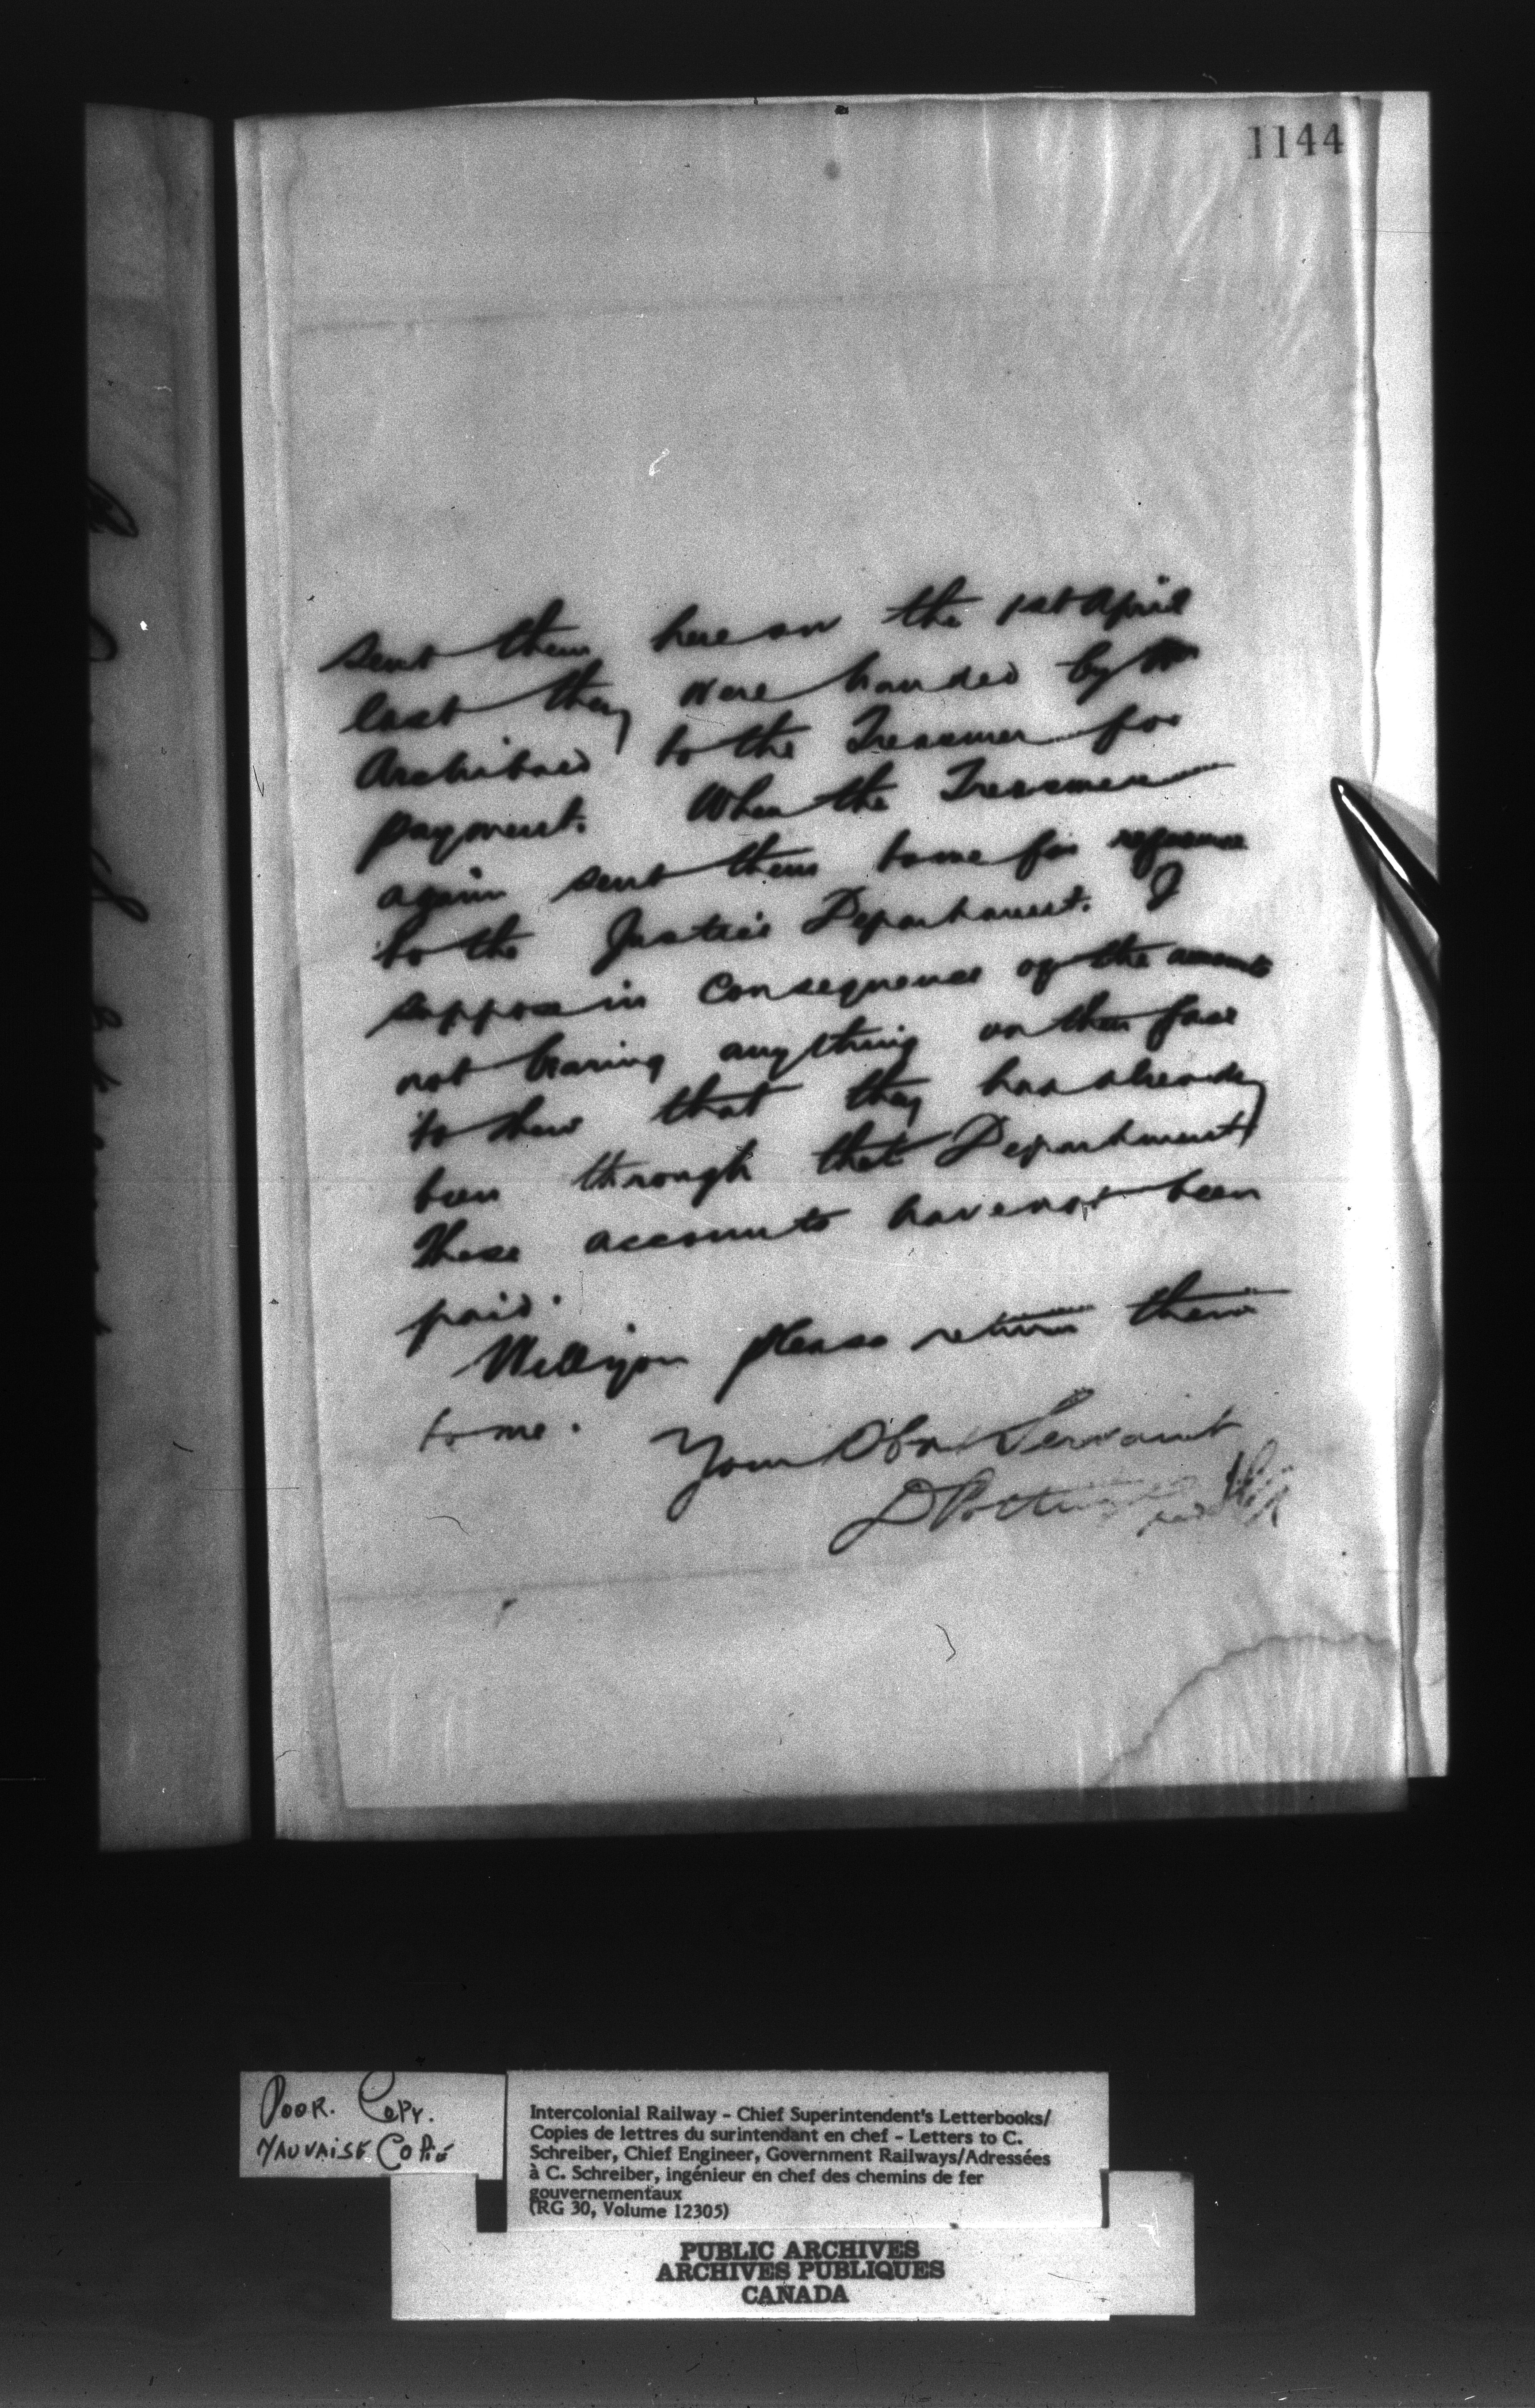 1144
sent them here on the 1st April
last they were handed by Mr
Archibald to the Treasurer for
payment. When the Treasurer
again sent them to me for reference
to the Justice Department. I
suppose in consequence of the accounts
not bearing anything on their face
to shew that they had already
been through that Department
These accounts have not been
paid.
Will you please return them
to me.
Your Obt Servant
D Pottinger
POOR. COPY.
MAUVAISE COPIE
Intercolonial Railway - Chief Superintendent's Letterbooks/
Copies de lettres du surintendant en chef - Letters to C.
Schreiber, Chief Engineer, Government Railways/Adressées
à C. Schreiber, ingénieur en chef des chemins de fer
gouvernementaux
(RG 30, Volume 12305)
PUBLIC ARCHIVES
ARCHIVES PUBLIQUES
CANADA